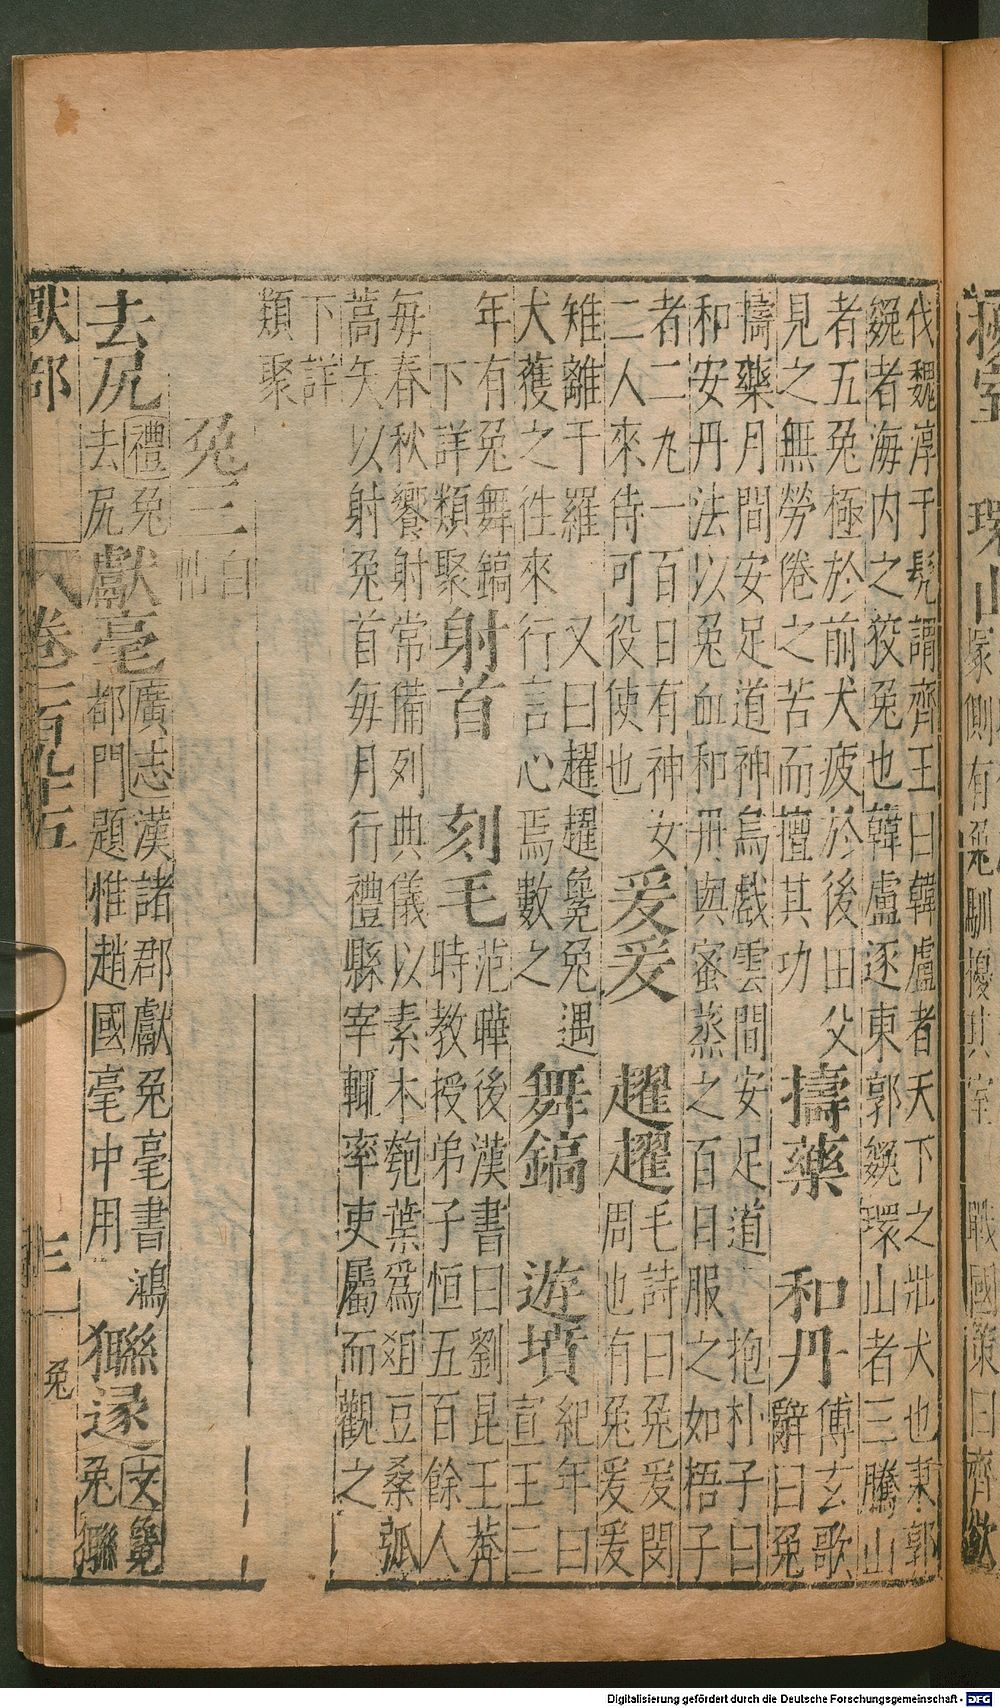 冢側有兔馴擾其室 戰國策曰齊欲
伐魏淳于髡謂齊王曰韓盧者天下之壯犬也東郭
㕙者海内之狡兔也韓盧逐東郭㕙環山者三騰山
者五兔極於前犬疲於後田父
見之無勞倦之苦而擅其功
擣藥 和丹
傅玄歌
辭曰兔
擣藥月間安足道神烏戲雲間安足道 抱朴子曰
和安丹法以兔血和丹與蜜蒸之百日服之如梧子
者二丸一百日有神女
二人來侍可役使也
爰爰 趯趯
毛詩曰兔爰爰閔
周也有兔爰爰
雉離于羅 又曰趯趯毚兔遇
犬獲之往來行言心焉數之
舞鎬 遊墳
紀年曰
宣王三
年有兔舞鎬
下詳類聚
射首 刻毛
范曄後漢書曰劉昆王莽
時教授弟子恒五百餘人
每春秋饗射常備列典儀以素木匏葉爲俎豆桑弧
蒿矢以射兔首每月行禮縣宰輒率吏屬而觀之
下詳
類聚
兔三
白
帖
去尻
禮兔
去尻
獻毫
廣志漢諸郡獻兔毫書鴻
都門題惟趙國毫中用
猭
兔
獸部 卷一百九十五 三 兔
Digitalisierung gefördert durch die Deutsche Forschungsgemeinschaft - DFG